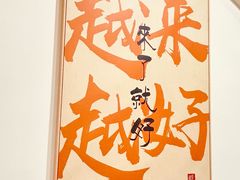 越来
越好
来了就好